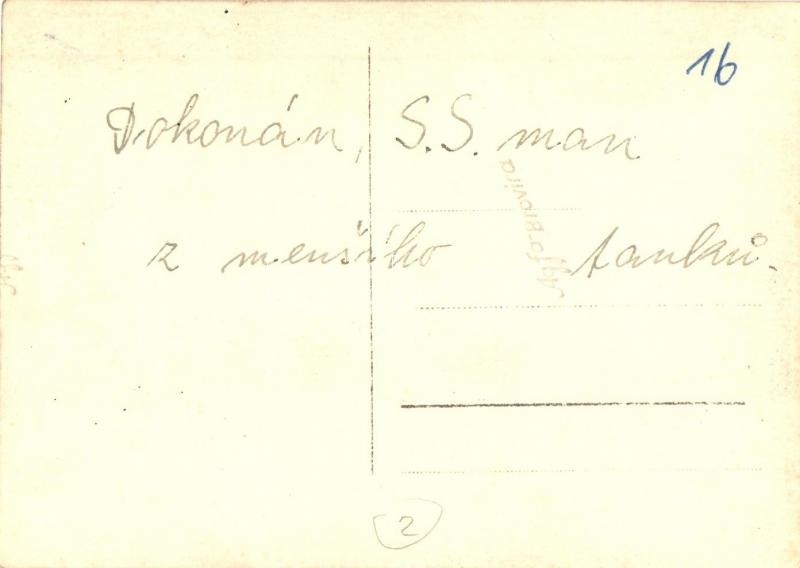 16
Dokonán, S.S. man
z menšího tanků.
Agfa Brovira
2